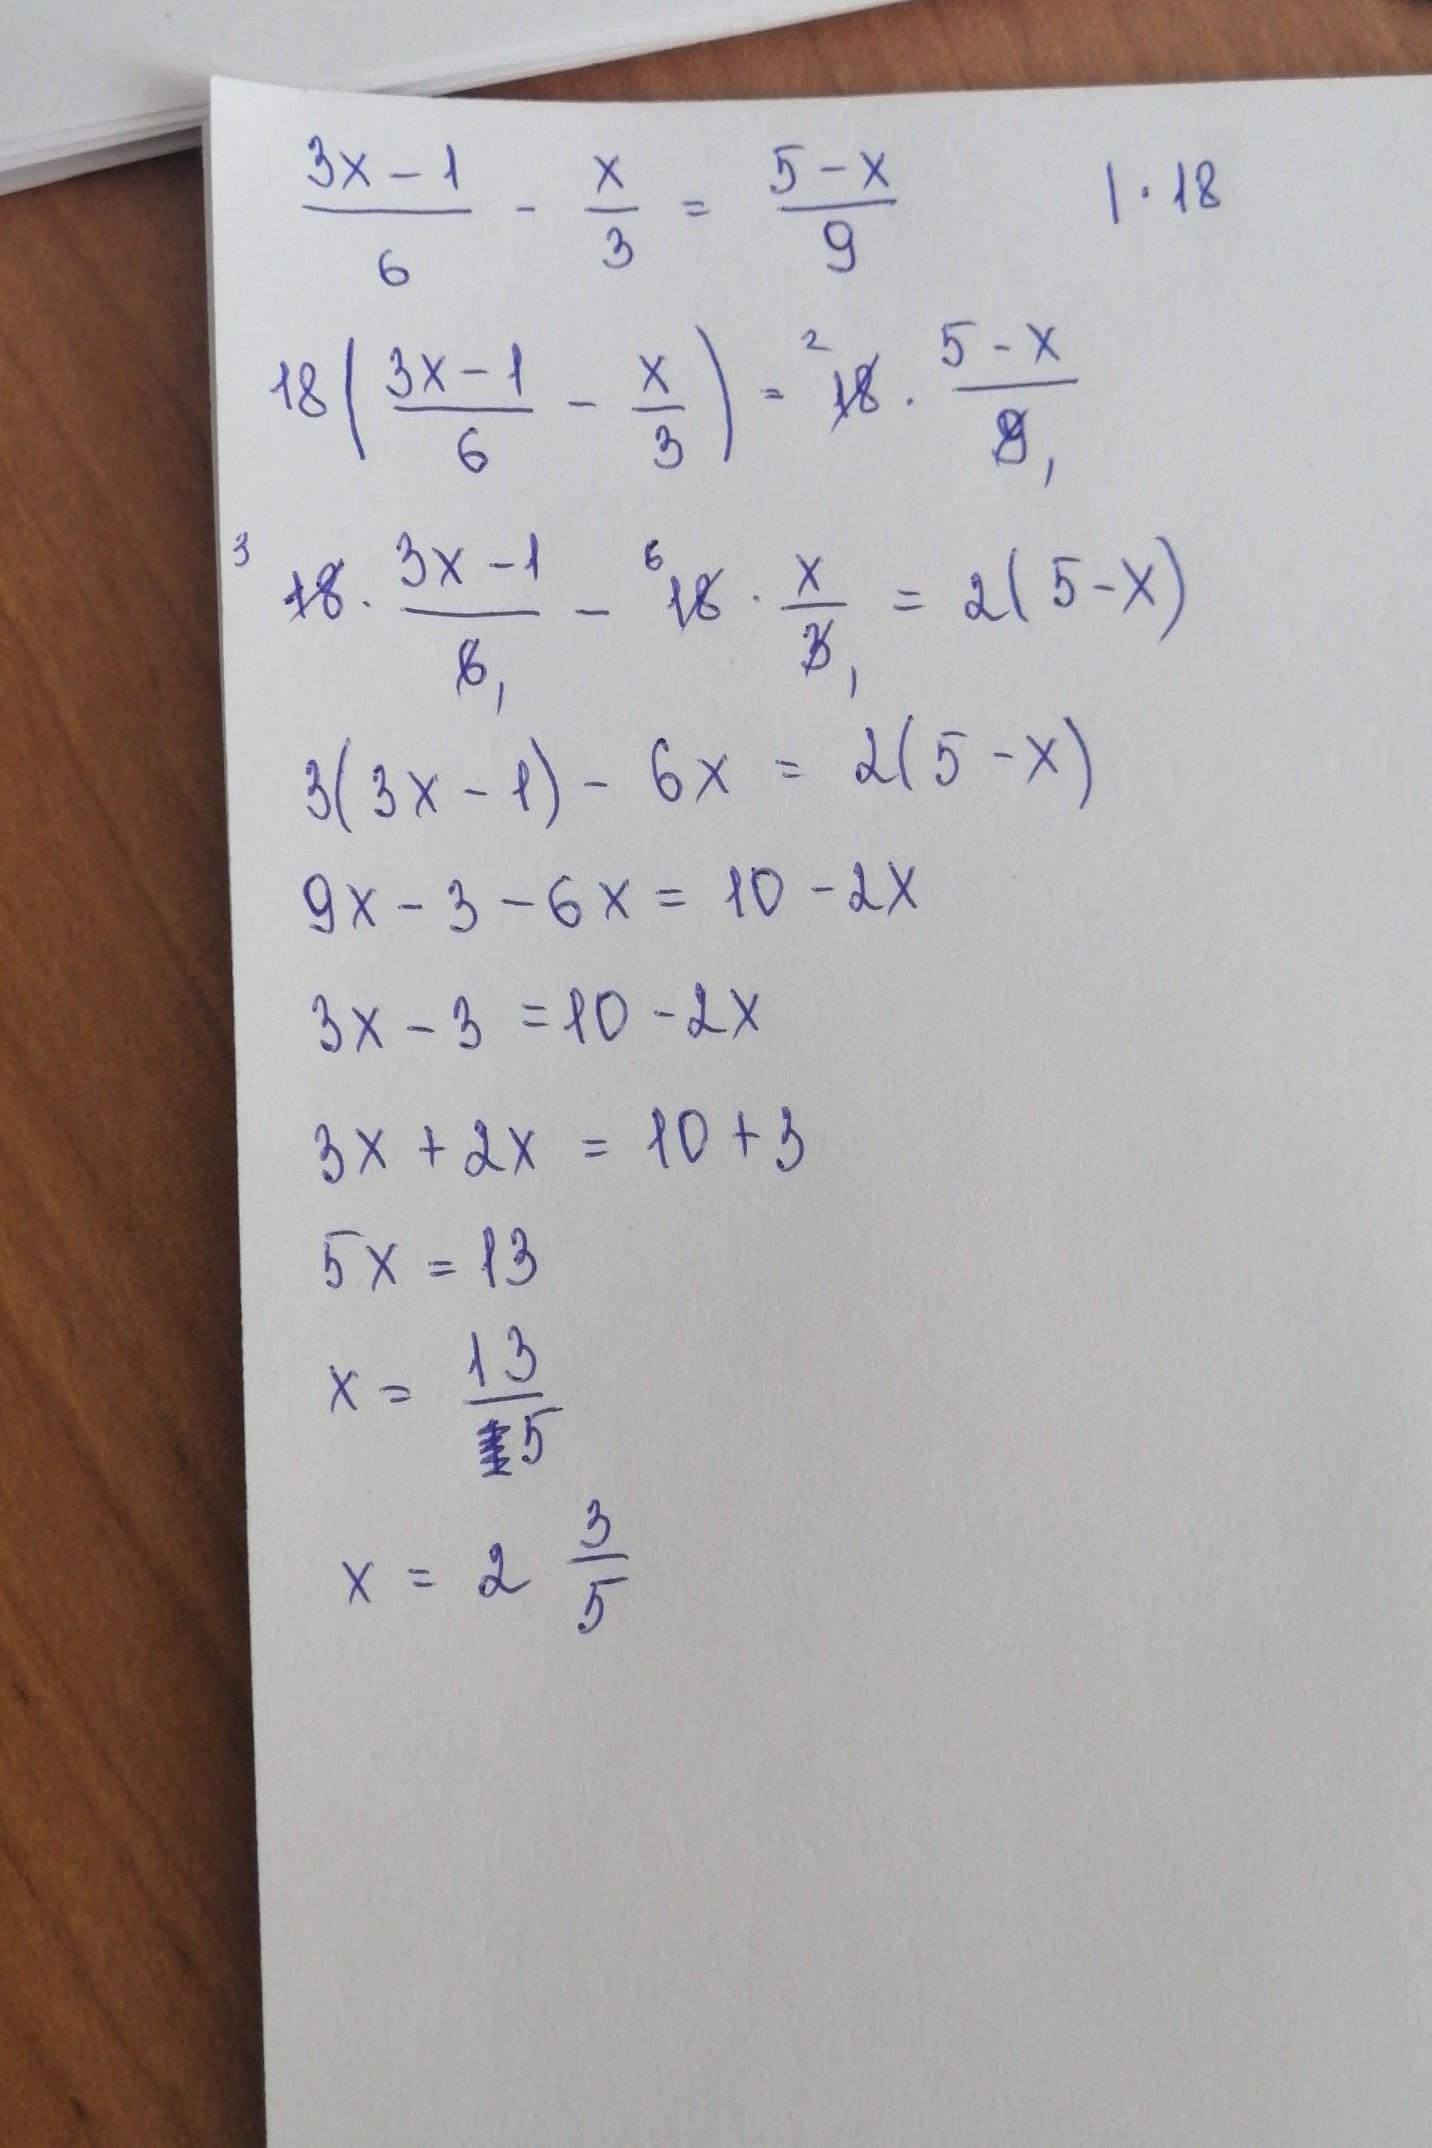 (3x - 1)/6 - x/3 = (5 - x)/9 | · 18
18((3x - 1)/6 - x/3) = 18² · (5 - x)/9₁
³18 · (3x - 1)/6₁ - ⁶18 · x/3₁ = 2(5 - x)
3(3x - 1) - 6x = 2(5 - x)
9x - 3 - 6x = 10 - 2x
3x - 3 = 10 - 2x
3x + 2x = 10 + 3
5x = 13
x = 13/5
x = 2 3/5